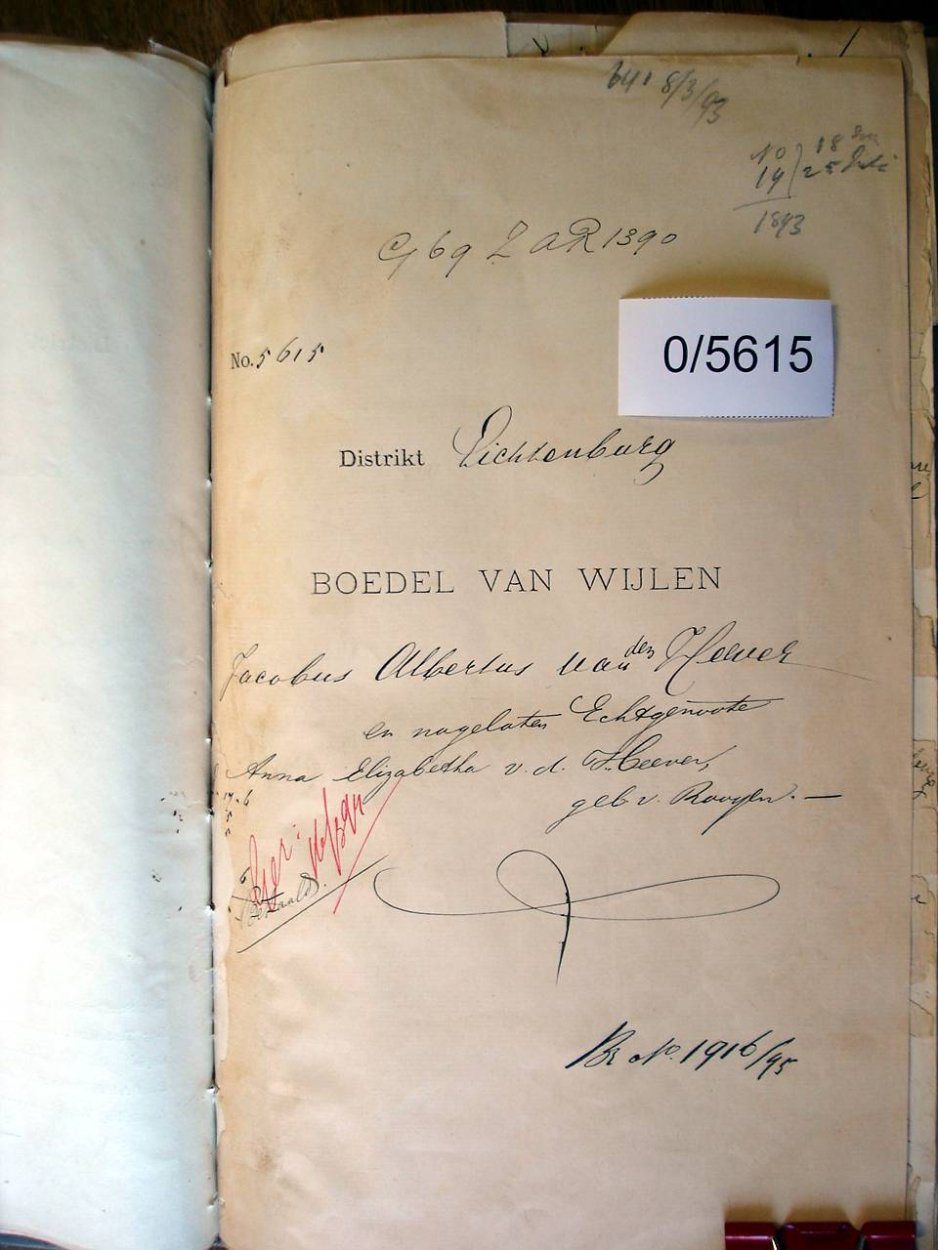 641 8/3/93
No 18
14 25
1893
Z A R 1390
0/5615
No. 5615
Distrikt Lichtenburg
BOEDEL VAN WIJLEN
Jacobus Albertus van den Heever
en nagelaten Echtgenoote
Anna Elizabetha v. d. Heever,
geb v. Rooyen. —
16/3 94
Betaald.
Br No. 1916/95